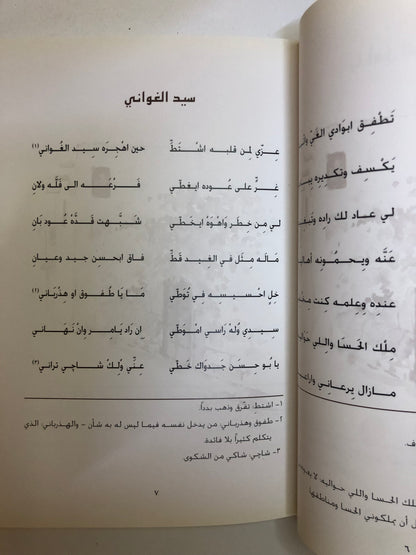 سيد الغواني
عزّي لمن قلبه اشتطّ حين اهجره سيد الغواني(١)
غرٍّ على عوده ايغطّي فرعه الى فلّه ولان
لي من خطر واهوه ايخطّي شبّهت قدّه عود بان
ماله مثل في الغيد قطّ فاق ابحسن جيد وعيان
خل احسيسه في توطّي ما يا طفوق او هذربان(٢)
سيدي وله راسي اموطّي ان راد يامر وان نهاني
يا بو حسن جدواك خطّي عنّي ولك شاجي تراني(٣)
١- اشتط: تفرق وذهب بدداً.
٢- طفوق وهذرباني: من يدخل نفسه فيما ليس له به شأن - والهذرباني: الذي
يتكلم كثيراً بلا فائدة.
٣- شاجي: شاكي من الشكوى.
٧
تطفق ابوادي الغي
يكسف وتكديره
لي عاد لك راده
عنّه ويحمونه
عنده وعلمه كنت
ملك الحسا واللي
مازال يرعاني
لك الحسا واللي حواليه: لا
أن يملكوني الحسا ومناطقها
٦